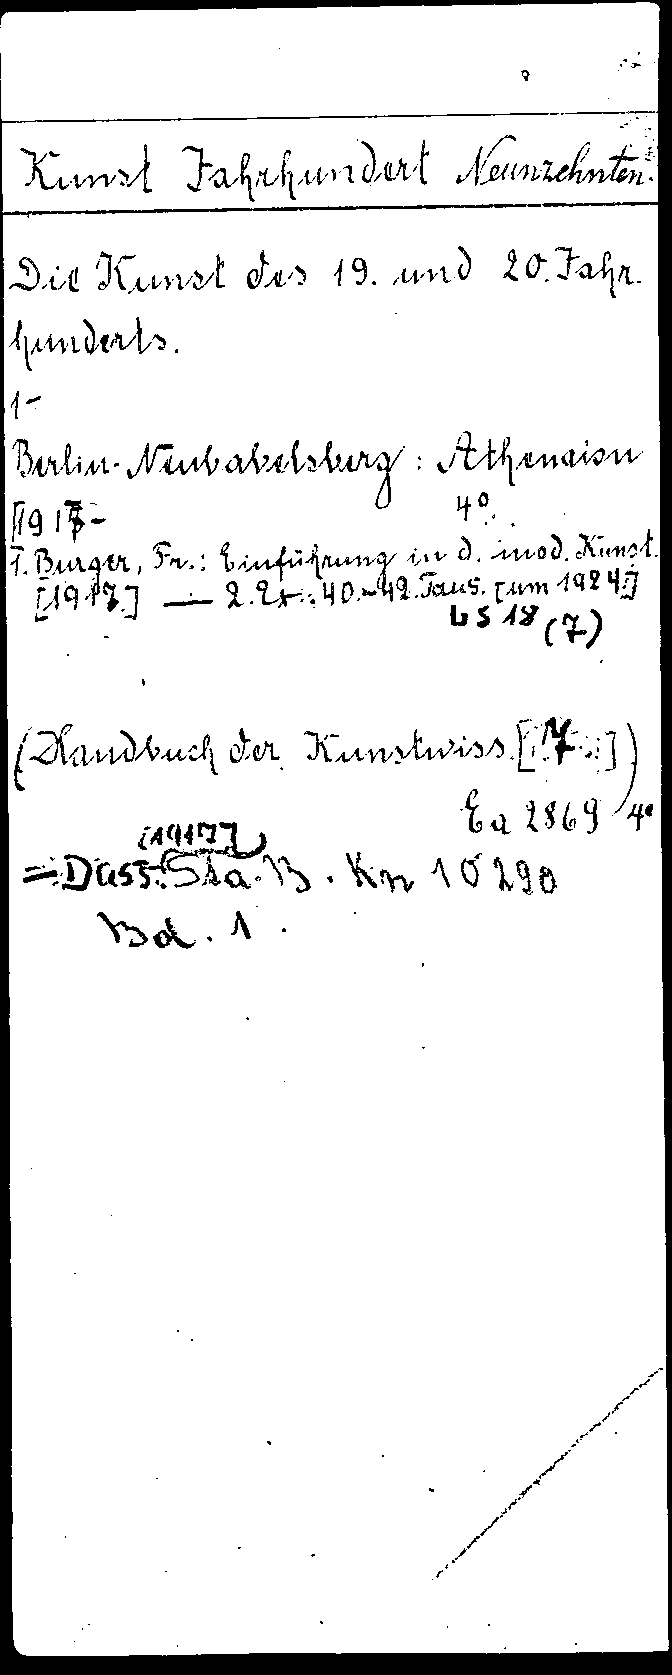 Kunst Jahrhundert Neunzehnten.
Die Kunst des 19. und 20. Jahr.
hunderts.
1-
Berlin-Neubabelsberg: Athenaion
[1917- 4°.
1. Burger, Fr.: Einführung in d. mod. Kunst.
[1917.] — 2. Ex.: 40.-42. Taus. [um 1924.]
LS 18 (7)
(Handbuch der Kunstwiss. [7])
Ea 2869 4°
[1917]
= Düss. Sta. B. Kn 10290
Bd. 1.